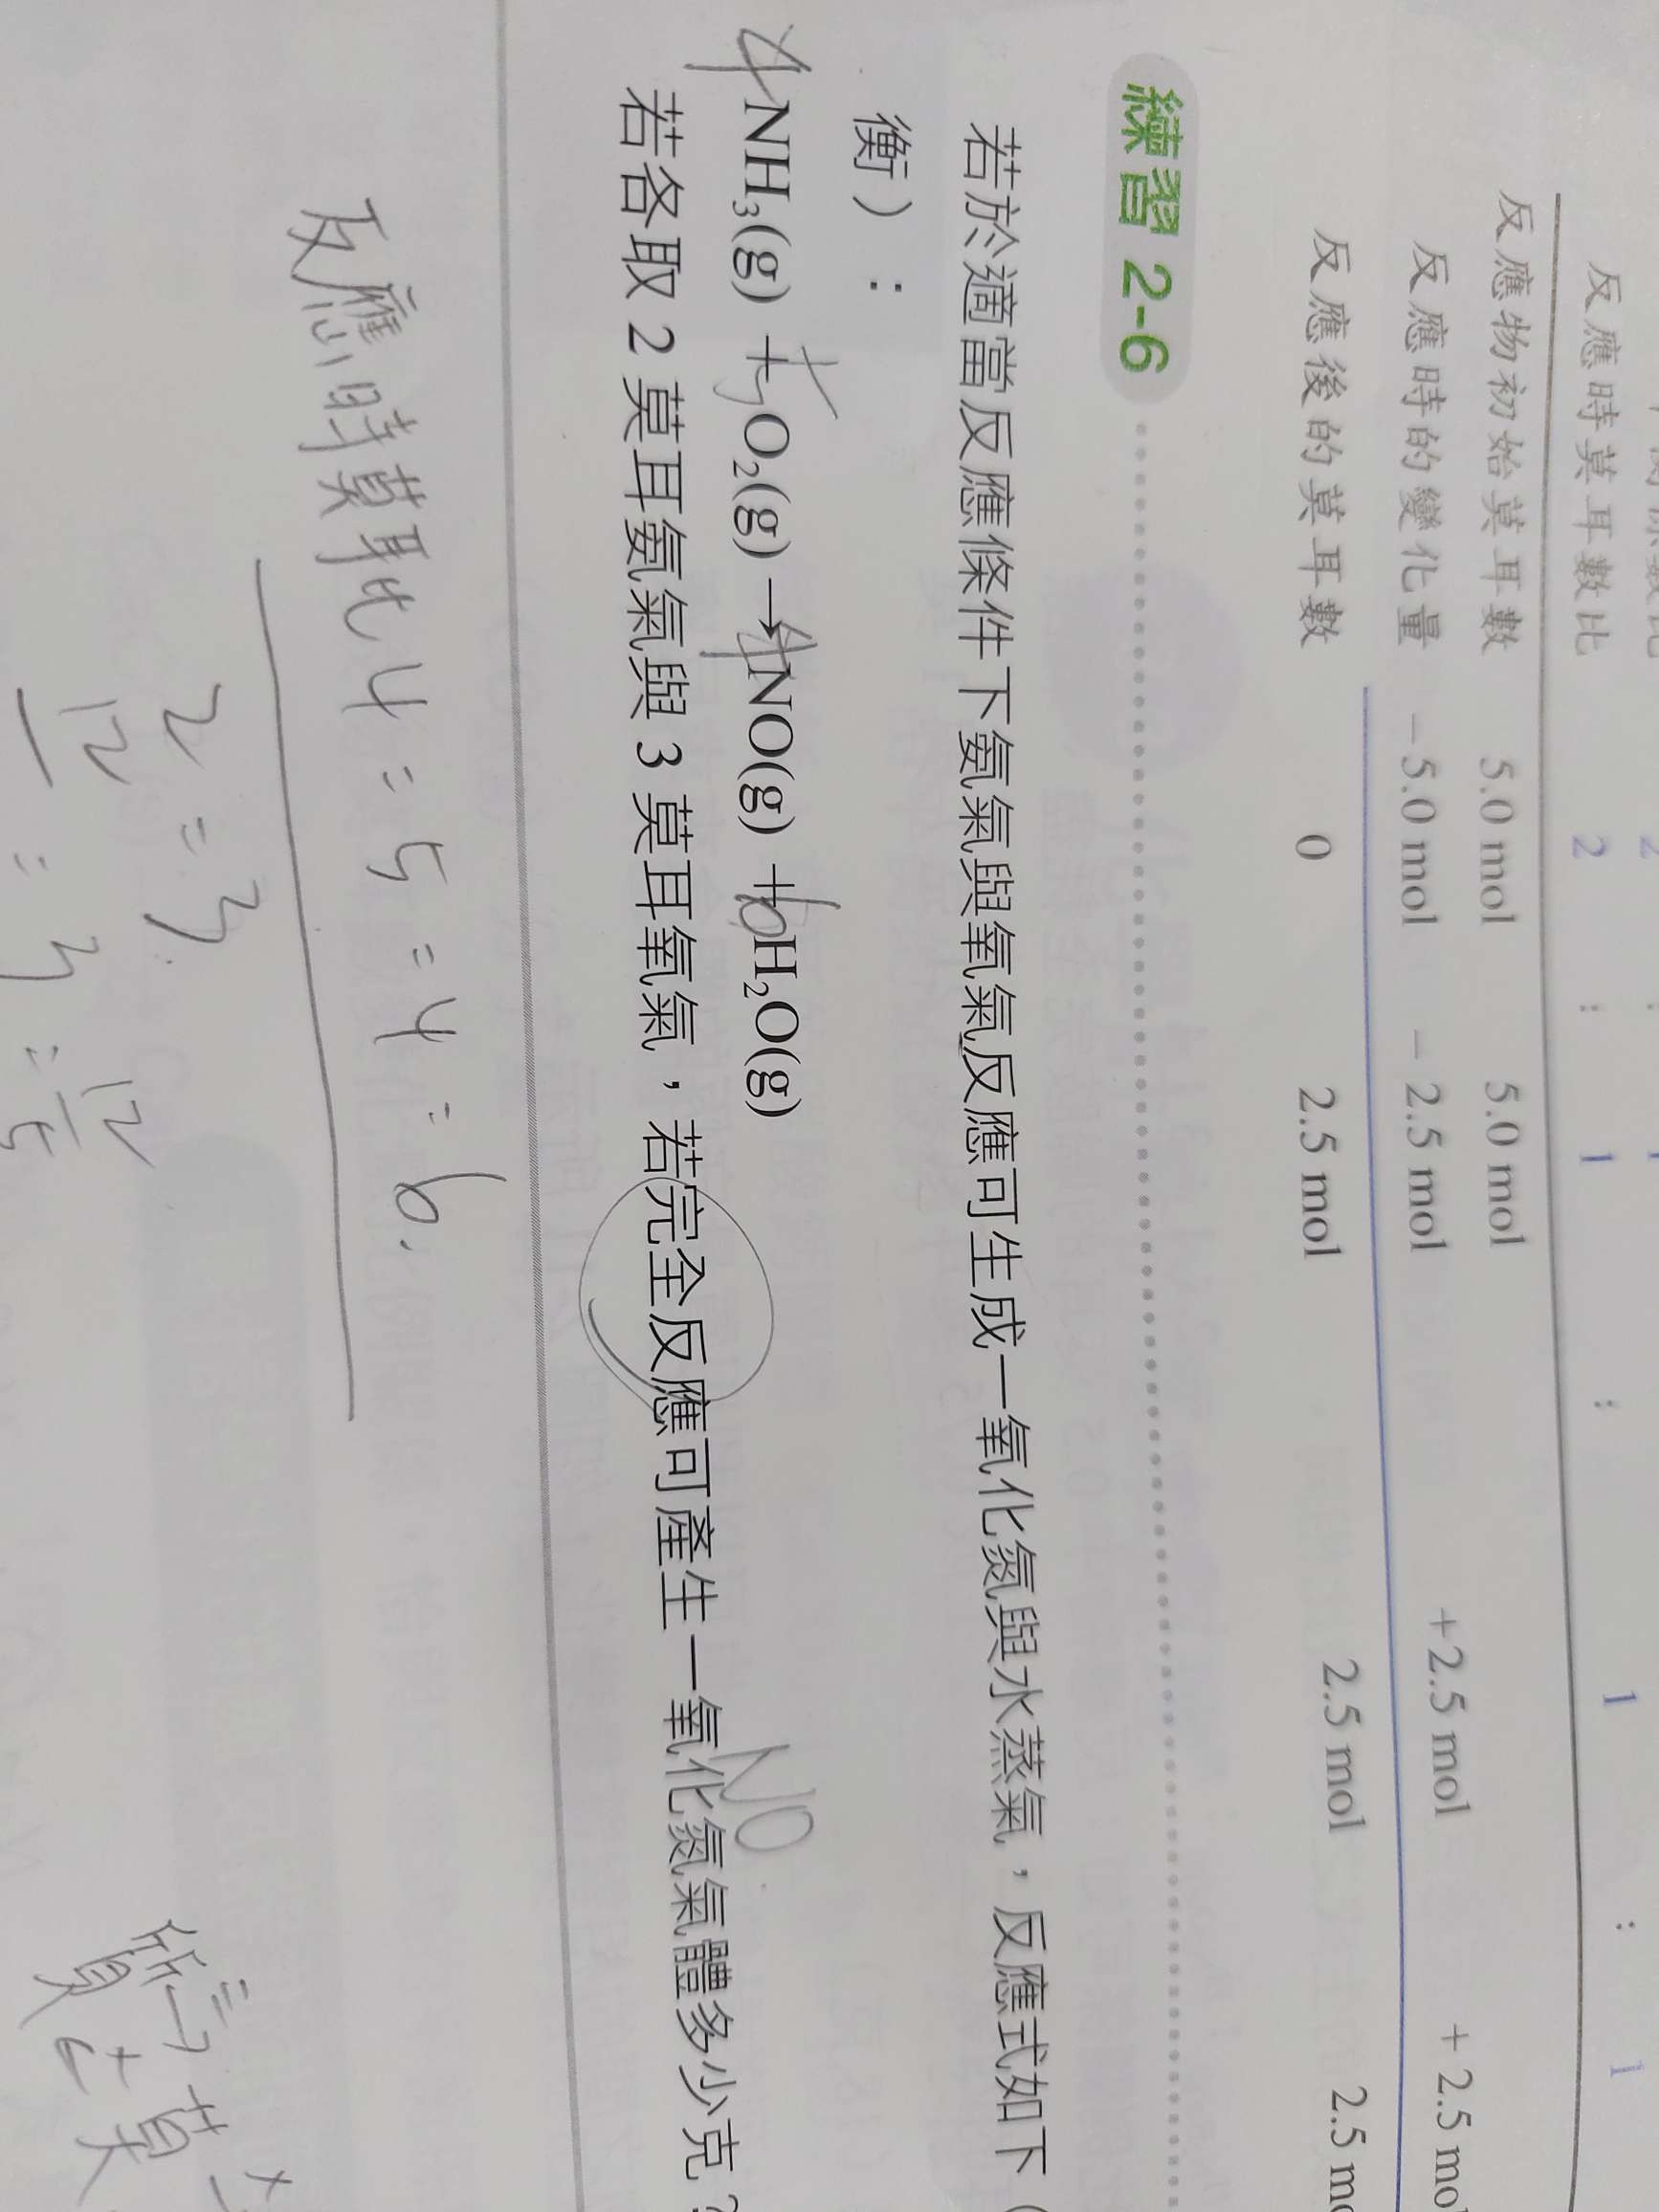 反應時莫耳數比 2 : 1 : 1 : 1
反應物初始莫耳數 5.0 mol 5.0 mol
反應時的變化量 −5.0 mol −2.5 mol +2.5 mol +2.5 mol
反應後的莫耳數 0 2.5 mol 2.5 mol 2.5 mo
練習 2-6
若於適當反應條件下氨氣與氧氣反應可生成一氧化氮與水蒸氣，反應式如下（
衡）：
4NH₃(g) + 5O₂(g) → 4NO(g) + 6H₂O(g)
NO
若各取 2 莫耳氨氣與 3 莫耳氧氣，若完全反應可產生一氧化氮氣體多少克？
反應時莫耳比 4 = 5 = 4 = 6.
2 = 3
12